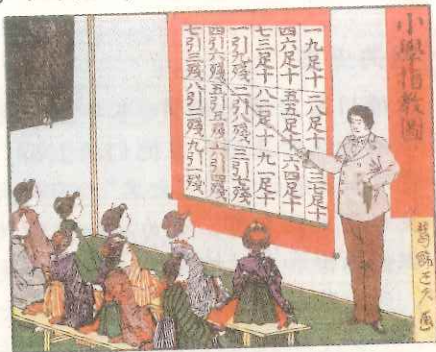 小學指教圖
一九足十 二八足十 三七足十
四六足十 五五足十 六四足十
七三足十 八二足十 九一足十
一引九残 二引八残 三引七残
四引六残 五引五残 六引四残
七引三残 八引二残 九引一残
葛飾